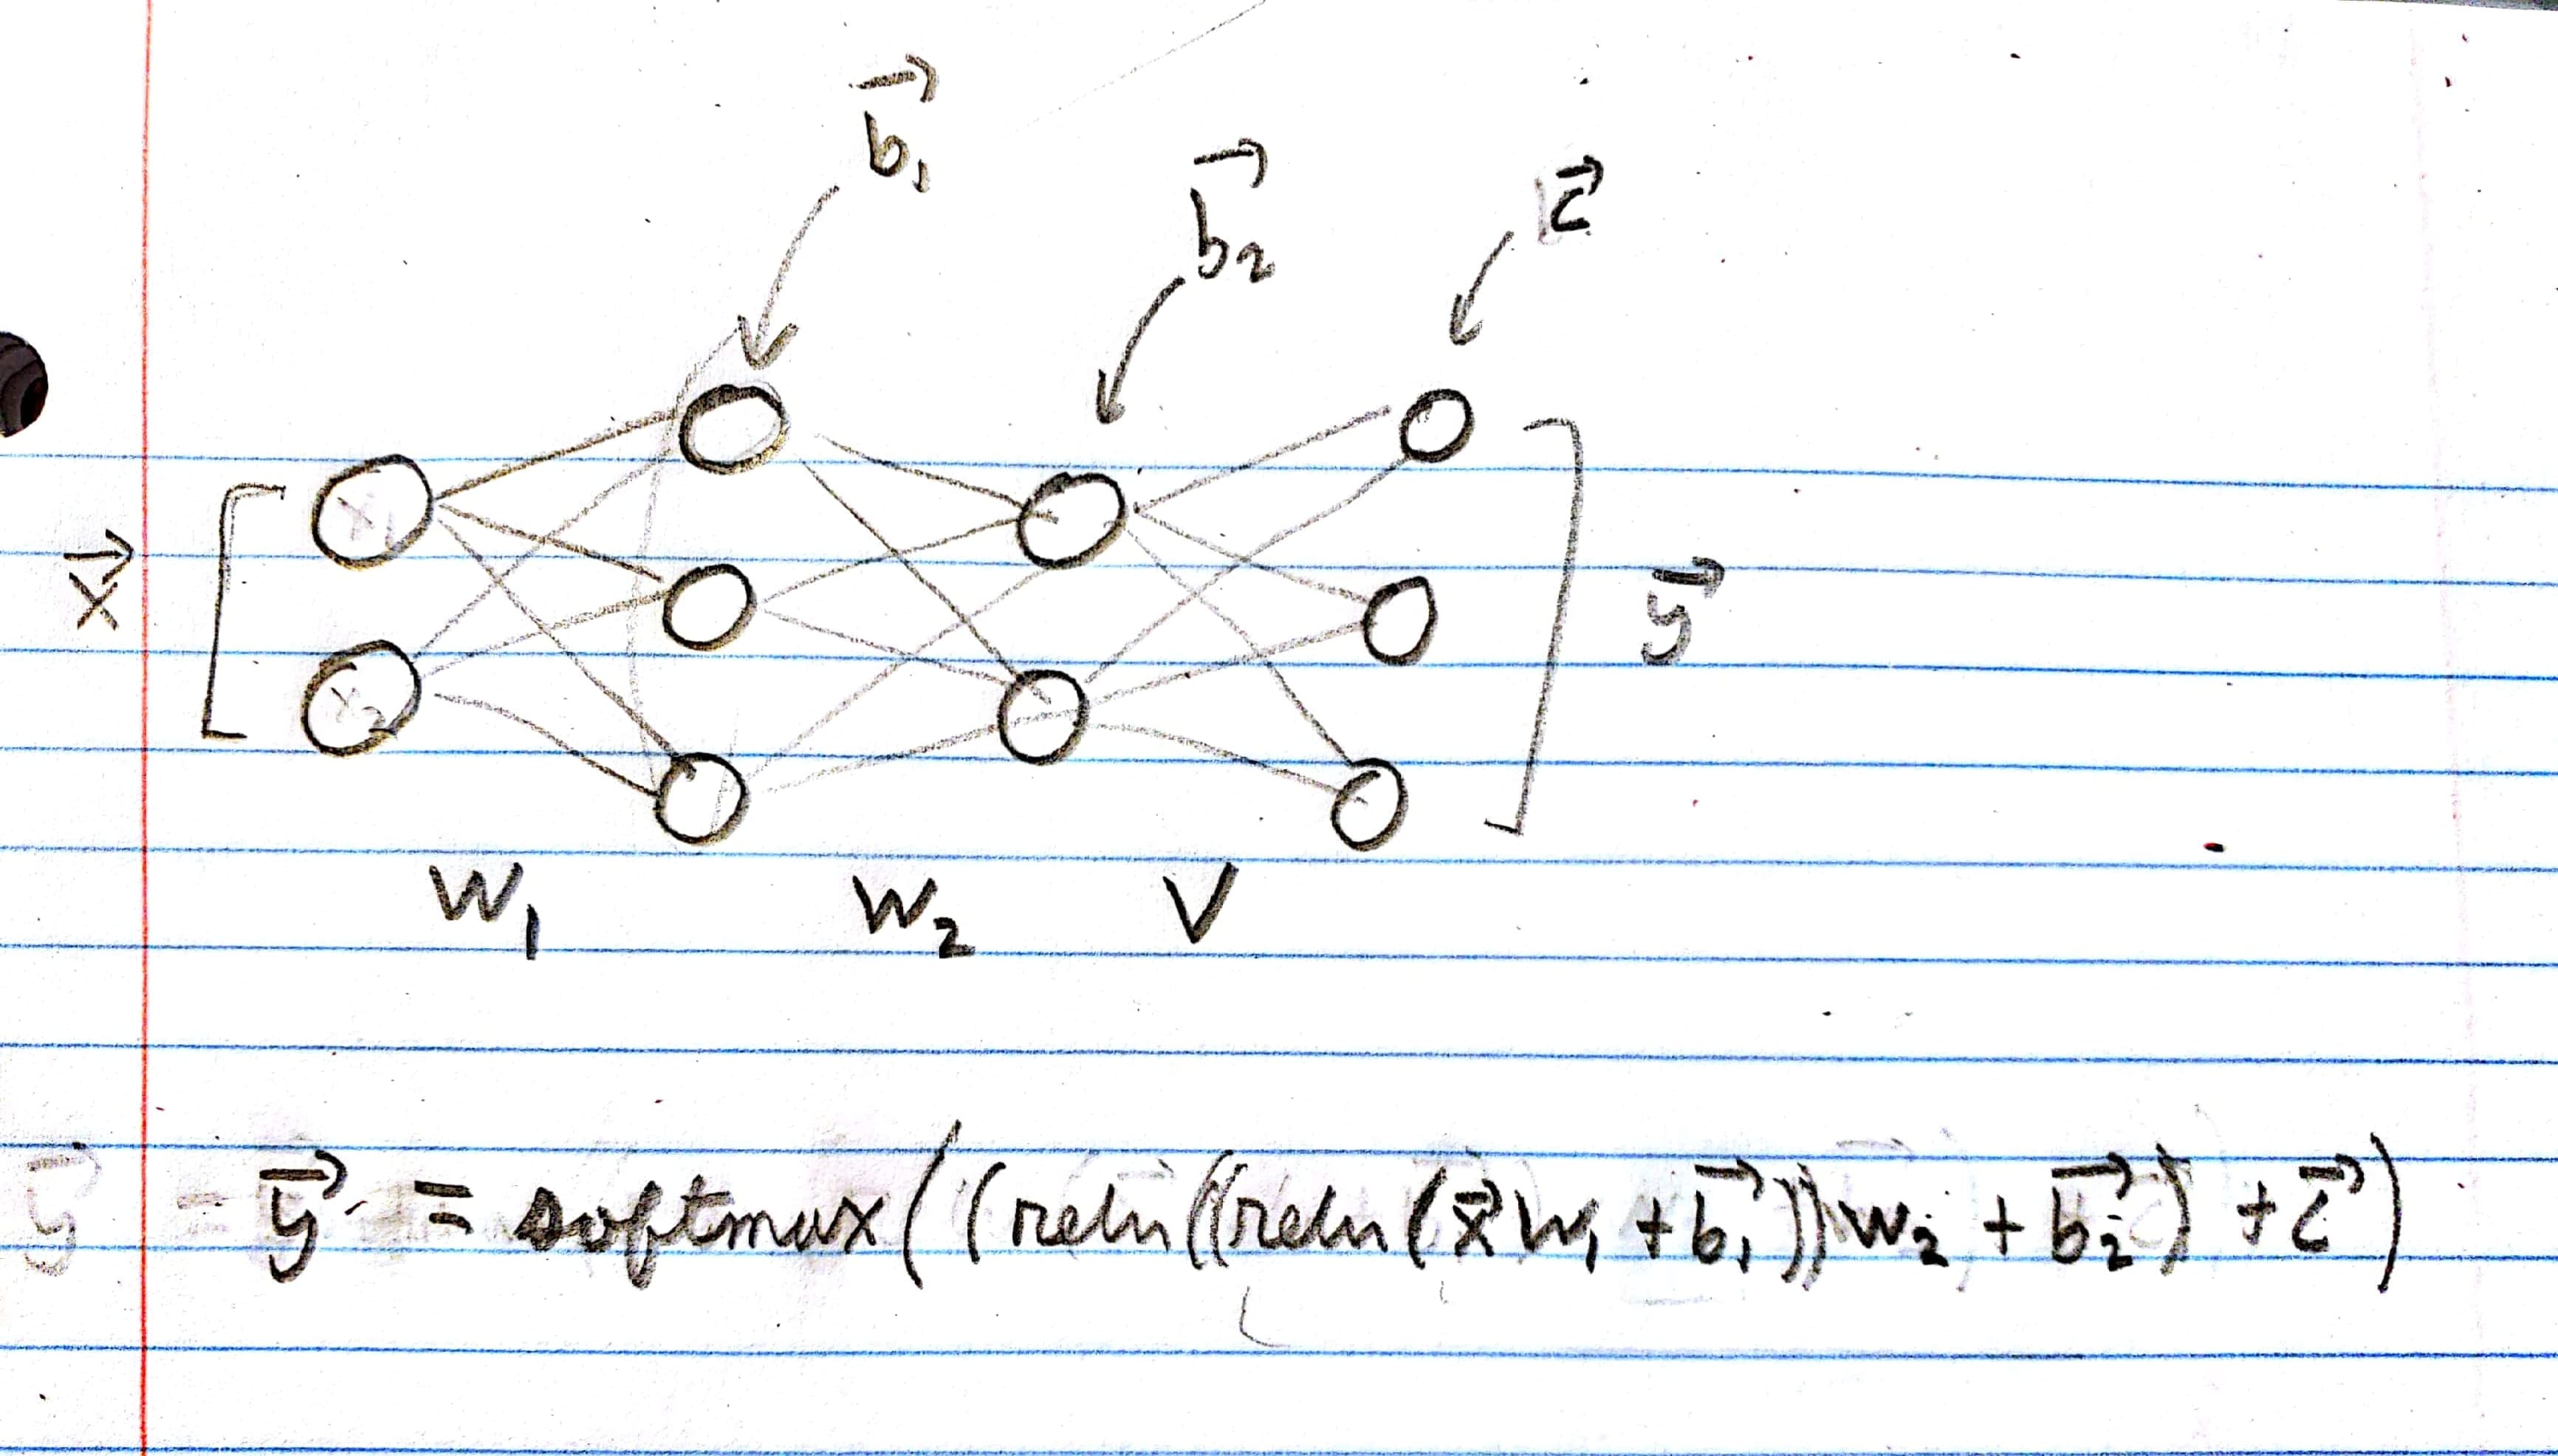 b⃗₁
b⃗₂
c⃗
x⃗
x₁
x₂
y⃗
W₁ W₂ V
y⃗ = softmax((relu((relu(x⃗W₁ + b⃗₁))W₂ + b⃗₂) + c⃗)